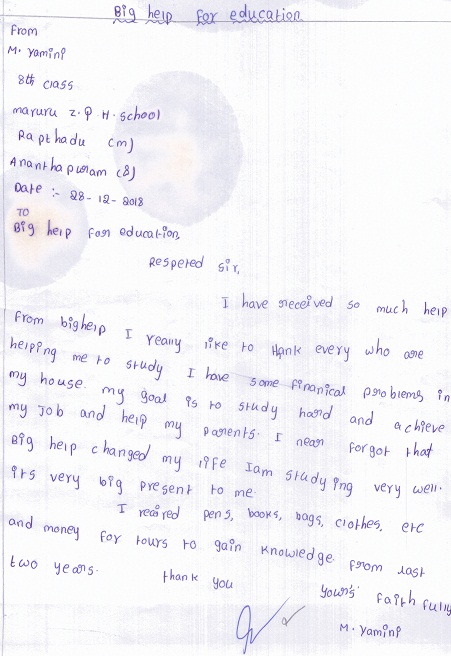 Big help for education
From
M. Yamini
8th class
maruru z.p H. school
Rapthadu (m)
Ananthapuram (8)
Date :- 28-12-2018
TO
Big help for education,
Respeted sir,
I have received so much help
from bighelp I really like to thank every who are
helping me to study I have some finanical problems in
my house. my goal is to study hard and achieve
my Job and help my parents. I near forgot that
Big help changed my life Iam studying very well.
its very big present to me.
I reaired pens, books, bags, clothes, etc
and money for tours to gain knowledge from last
two years. thank you
yours faith fully
M. Yamini